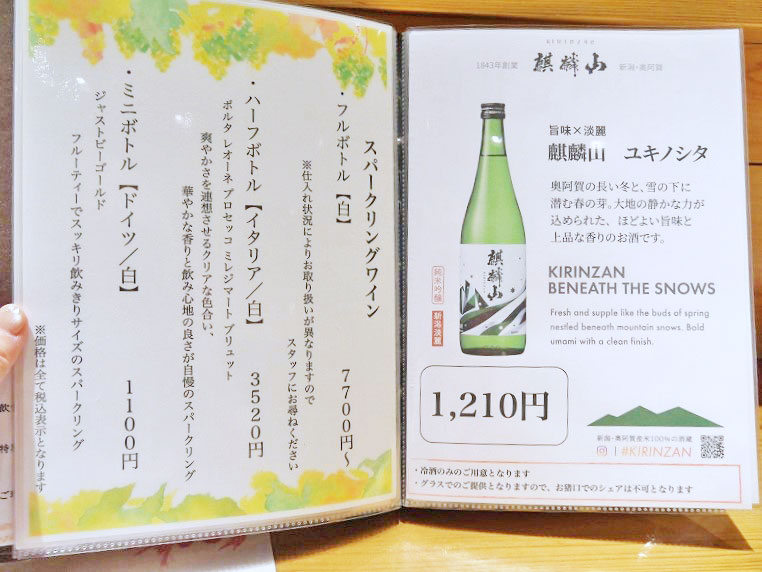 スパークリングワイン
・フルボトル【白】 7700円～
※仕入れ状況によりお取り扱いが異なりますので
スタッフにお尋ねください
・ハーフボトル【イタリア／白】 3520円
ポルタ レオーネ プロセッコ ミレジマート ブリュット
爽やかさを連想させるクリアな色合い、
華やかな香りと飲み心地の良さが自慢のスパークリング
・ミニボトル【ドイツ／白】 1100円
ジャストビーゴールド
フルーティーでスッキリ飲みきりサイズのスパークリング
※価格は全て税込表示となります
KIRINZAN
1843年創業 麒麟山 新潟・奥阿賀
旨味×淡麗
麒麟山 ユキノシタ
奥阿賀の長い冬と、雪の下に
潜む春の芽。大地の静かな力が
込められた、ほどよい旨味と
上品な香りのお酒です。
純米吟醸
新潟淡麗
麒麟山
KIRINZAN
BENEATH THE SNOWS
Fresh and supple like the buds of spring
nestled beneath mountain snows. Bold
umami with a clean finish.
1,210円
新潟・奥阿賀産米100%の酒蔵
#KIRINZAN
・冷酒のみのご用意となります
・グラスでのご提供となりますので、お猪口でのシェアは不可となります